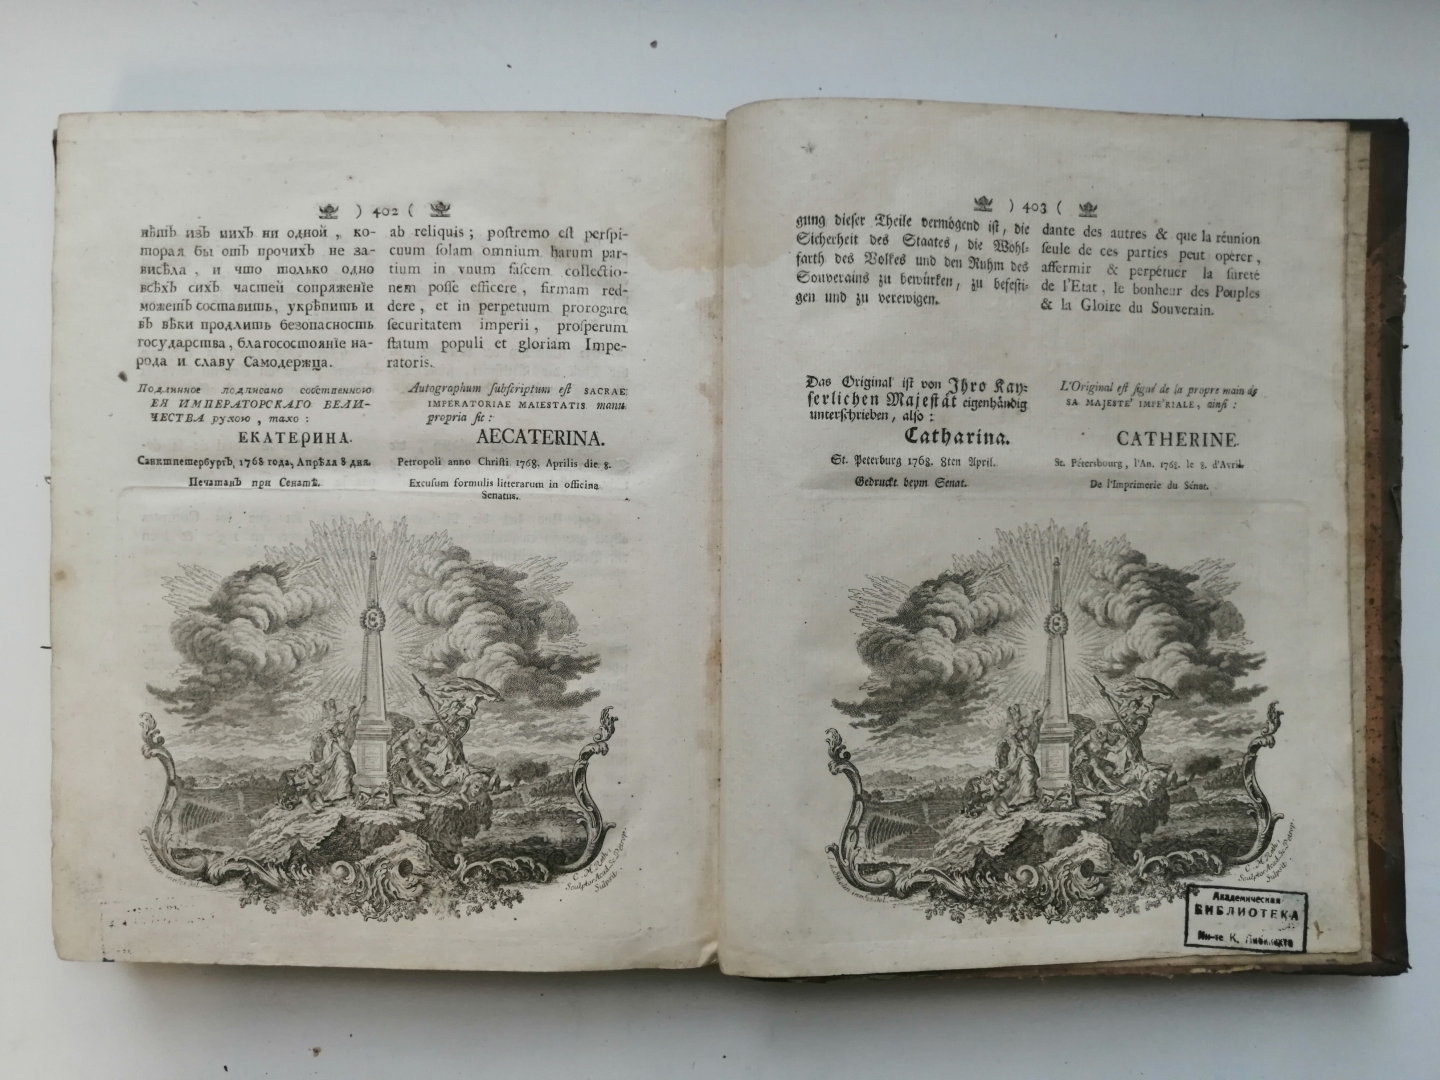 ) 402 (
нѣтъ изъ нихъ ни одной , ко-
торая бы отъ прочихъ не за-
висѣла , и что только одно
всѣхъ сихъ частей сопряженіе
можетъ составить, укрѣпить и
въ вѣки продлить безопасность
государства, благосостояніе на-
рода и славу Самодержца.
Подлинное подписано собственною
ЕЯ ИМПЕРАТОРСКАГО ВЕЛИ-
ЧЕСТВА рукою , тако :
ЕКАТЕРИНА.
Санктпетербургъ, 1768 года, Апрѣля 8 дня.
Печатанъ при Сенатѣ.
ab reliquis ; poſtremo eſt perſpi-
cuum ſolam omnium harum par-
tium in vnum faſcem collectio-
nem poſſe efficere , firmam red-
dere , et in perpetuum prorogare
ſecuritatem imperii , proſperum
ſtatum populi et gloriam Impe-
ratoris.
Autographum ſubſcriptum eſt SACRAE
IMPERATORIAE MAIESTATIS manu
propria ſic :
AECATERINA.
Petropoli anno Chriſti 1768. Aprilis die. 8.
Excuſum formulis litterarum in officina
Senatus.
C. M. Roth,
Sculptor Acad. Sc. Petrop.
Sculpsit.
) 403 (
gung dieſer Theile vermögend iſt, die
Sicherheit des Staates, die Wohl-
farth des Volkes und den Ruhm des
Souverains zu bewürken, zu befeſti-
gen und zu verewigen.
Das Original iſt von Ihro Kay-
ſerlichen Majeſtät eigenhändig
unterſchrieben, alſo :
Catharina.
St. Peterburg 1768. 8ten April.
Gedruckt beym Senat.
dante des autres & que la réunion
ſeule de ces parties peut opérer,
affermir & perpétuer la ſureté
de l'Etat, le bonheur des Peuples
& la Gloire du Souverain.
L'Original eſt ſigné de la propre main de
SA MAJESTE' IMPE'RIALE, ainſi :
CATHERINE.
St. Pétersbourg, l'An. 1768. le 8. d'Avril.
De l'Imprimerie du Sénat.
C. M. Roth,
Sculptor Acad. Sc. Petrop.
Sculpsit.
Академическая
БИБЛИОТЕКА
Ин-та К. Либкнехта